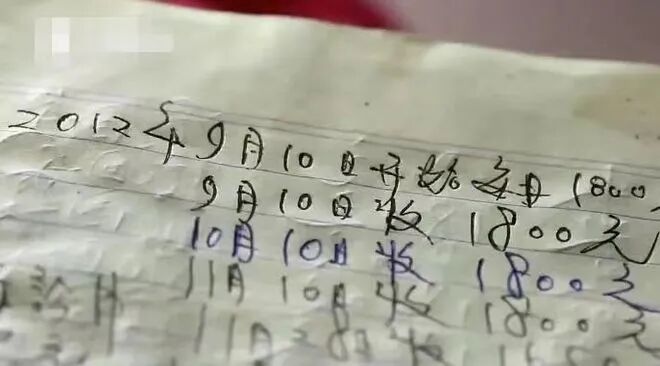 2012年9月10日开始每月1800
9月10日收 1800元
10月10日收 1800元
11月10日收 1800元
11月28日收